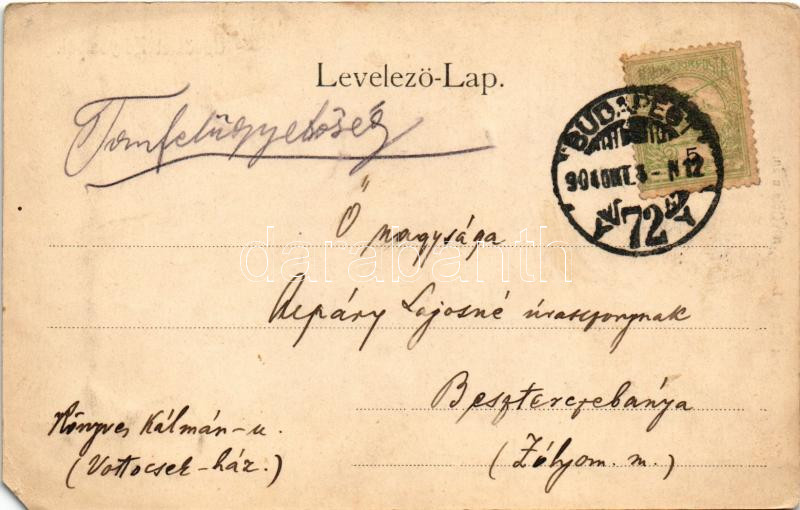 Levelező-Lap.
Tanfelügyelőség
BUDAPEST
904 OKT. 3 - N 12
72
5
Ő nagysága
Alpáry Lajosné úrasszonynak
Besztercebánya
(Zólyom. m.)
Könyves Kálmán-u.
-ház.)
darabanth